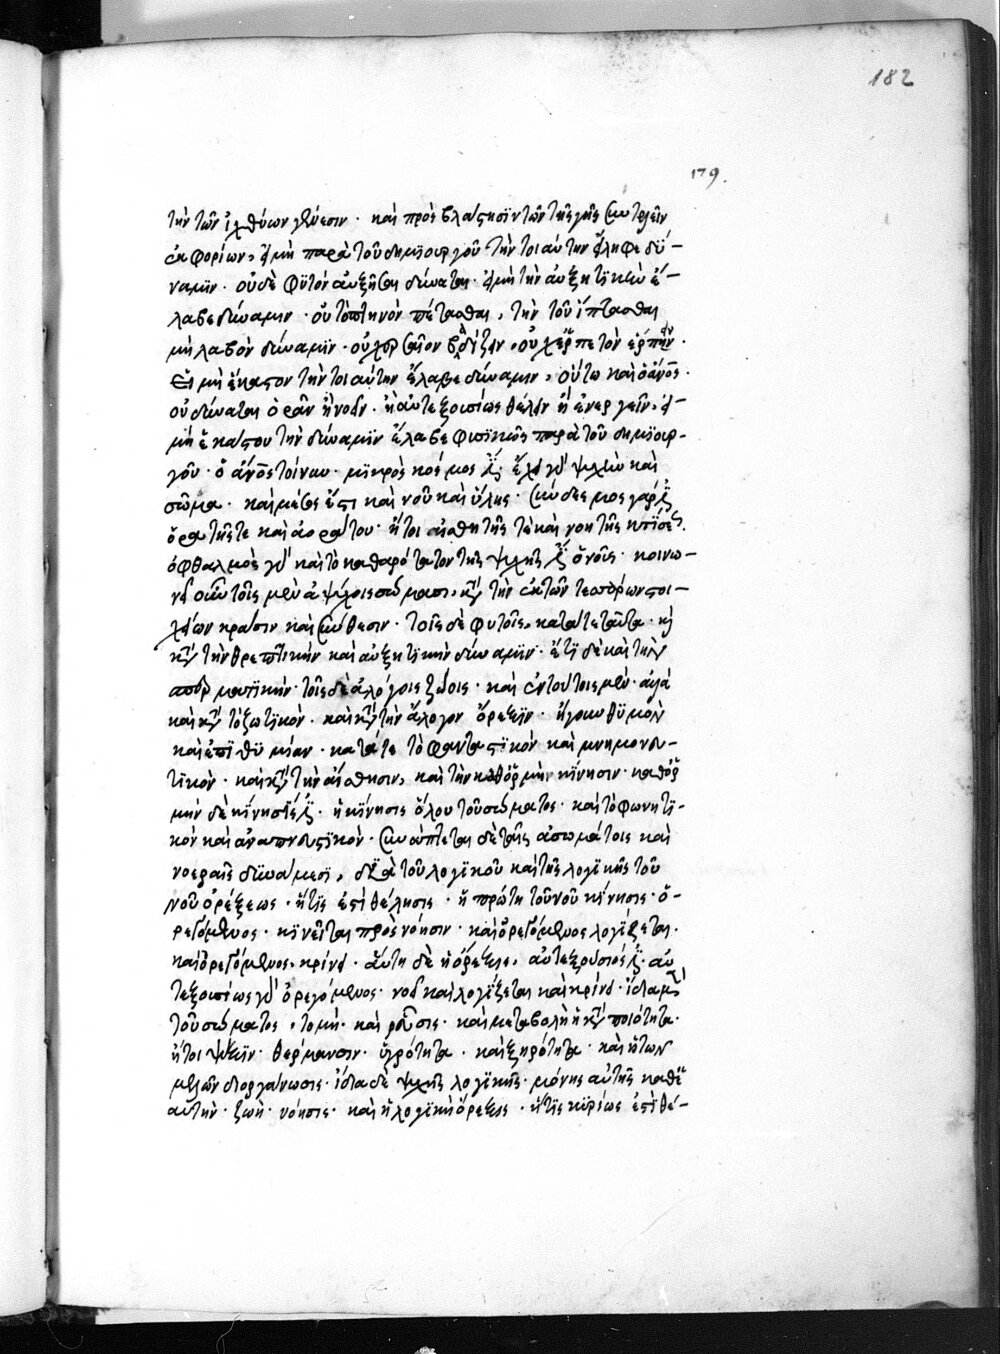 182
179.
τὴν τῶν ἰχθύων γένεσιν · καὶ πρὸς βλάστησιν τῶν τῆς γῆς
ἐκφορίων, εἰ μὴ παρὰ τοῦ δημϊουργοῦ τὴν τοιαύτην εἴληφε δύ-
ναμϊν · οὐδὲ φϋτὸν αὐξῆσαι δύναται · εἰ μὴ τὴν αὐξητϊκὴν ἔ-
λαβε δύναμιν · οὐ τὸ πτηνὸν πέτασθαι, τὴν τοῦ ἵπτασθαι
μὴ λαβὸν δύναμϊν · οὐ χερσαῖον βαδίζειν · οὐχ ἑρπετὸν ἕρπειν ·
εἰ μὴ ἕκαστον τὴν τοιαύτην ἔλαβε δύναμιν, οὕτω καὶ ὁ ἄνος ·
οὐ δύναται ὁρᾶν ἢ νοεῖν · ἢ αὐτεξουσίως θέλειν ἢ ἐνεργεῖν, εἰ
μὴ ἑκάστου τὴν δύναμϊν ἔλαβε φυσϊκῶς παρὰ τοῦ δημϊουρ-
γοῦ · ὁ ἄνος τοίνυν · μϊκρὸς κόσμος ἐστί · ἔχει γὰρ ψυχὴν καὶ
σῶμα · καὶ μέσος ἔστι καὶ νοῦ καὶ ὕλης · σύνδεσμος γάρ ἐστι
ὁρατῆς τε καὶ ἀοράτου · ἤτοι αἰσθητῆς τὲ καὶ νοητῆς κτίσεως.
ὀφθαλμὸς γὰρ καὶ τὸ καθαρότατον τῆς ψυχῆς ἐστὶ ὁ νοῦς · κοινω-
νεῖ οὖν τοῖς μὲν ἀψύχοις σώμασι, κατὰ τὴν ἐκ τῶν τεσσάρων στοι-
χείων κρᾶσιν καὶ σύνθεσιν · τοῖς δὲ φυτοῖς, κατά τε ταῦτα · καὶ
κατὰ τὴν θρεπτικὴν καὶ αὐξητϊκὴν δύναμϊν · ἔτϊ δὲ καὶ τὴν
σπερματϊκήν · τοῖς δὲ ἀλόγοις ζῴοις · καὶ ἐν τούτοις μὲν · ἀλλὰ
καὶ κατὰ τὸ ζωτϊκόν · καὶ κατὰ τὴν ἄλογον ὄρεξϊν · ἤγουν θϋμὸν
καὶ ἐπϊθϋμίαν · κατά τε τὸ φανταστϊκὸν καὶ μνημονευ-
τϊκόν · καὶ κατὰ τὴν αἴσθησιν, καὶ τὴν καθ' ὁρμὴν κίνησιν · καθ' ὁρ
μὴν δὲ κίνησίς ἐστι · ἡ κίνησις ὅλου τοῦ σώματος · καὶ τὸ φωνητϊ-
κὸν καὶ ἀναπνευστϊκόν · συνάπτεται δὲ ταῖς ἀσωμάτοις καὶ
νοεραῖς δϋνάμεσϊ, διὰ τοῦ λογϊκοῦ καὶ τῆς λογϊκῆς τοῦ
νοῦ ὀρέξεως · ἥτϊς ἐστὶ θέλησις · ἡ πρώτη τοῦ νοῦ κίνησις · ὀ-
ρεγόμενος · κϊνεῖται πρὸς νόησιν · καὶ ὀρεγόμενος λογίζεται ·
καὶ ὀρεγόμενος, κρίνει · αὕτη δὲ ἡ ὄρεξις, αὐτεξούσιός ἐστι · αὐ
τεξουσίως γὰρ ὀρεγόμενος · νοεῖ καὶ λογίζεται καὶ κρίνει · ἴδια μὲν
τοῦ σώματος, τομή · καὶ ῥεῦσις · καὶ μεταβολὴ ἡ κατὰ ποιότητα ·
ἤτοι ψῦξϊν · θέρμανσιν · ὑγρότητα · καὶ ξηρότητα · καὶ ἡ τῶν
μελῶν διοργάνωσις · ἴδια δὲ ψυχῆς λογϊκῆς · μόνης αὐτῆς καθ' ἑ
αυτὴν · ζωὴ · νόησις · καὶ ἡ λογϊκὴ ὄρεξις · ἥτϊς κϋρίως ἐστὶ θέ-